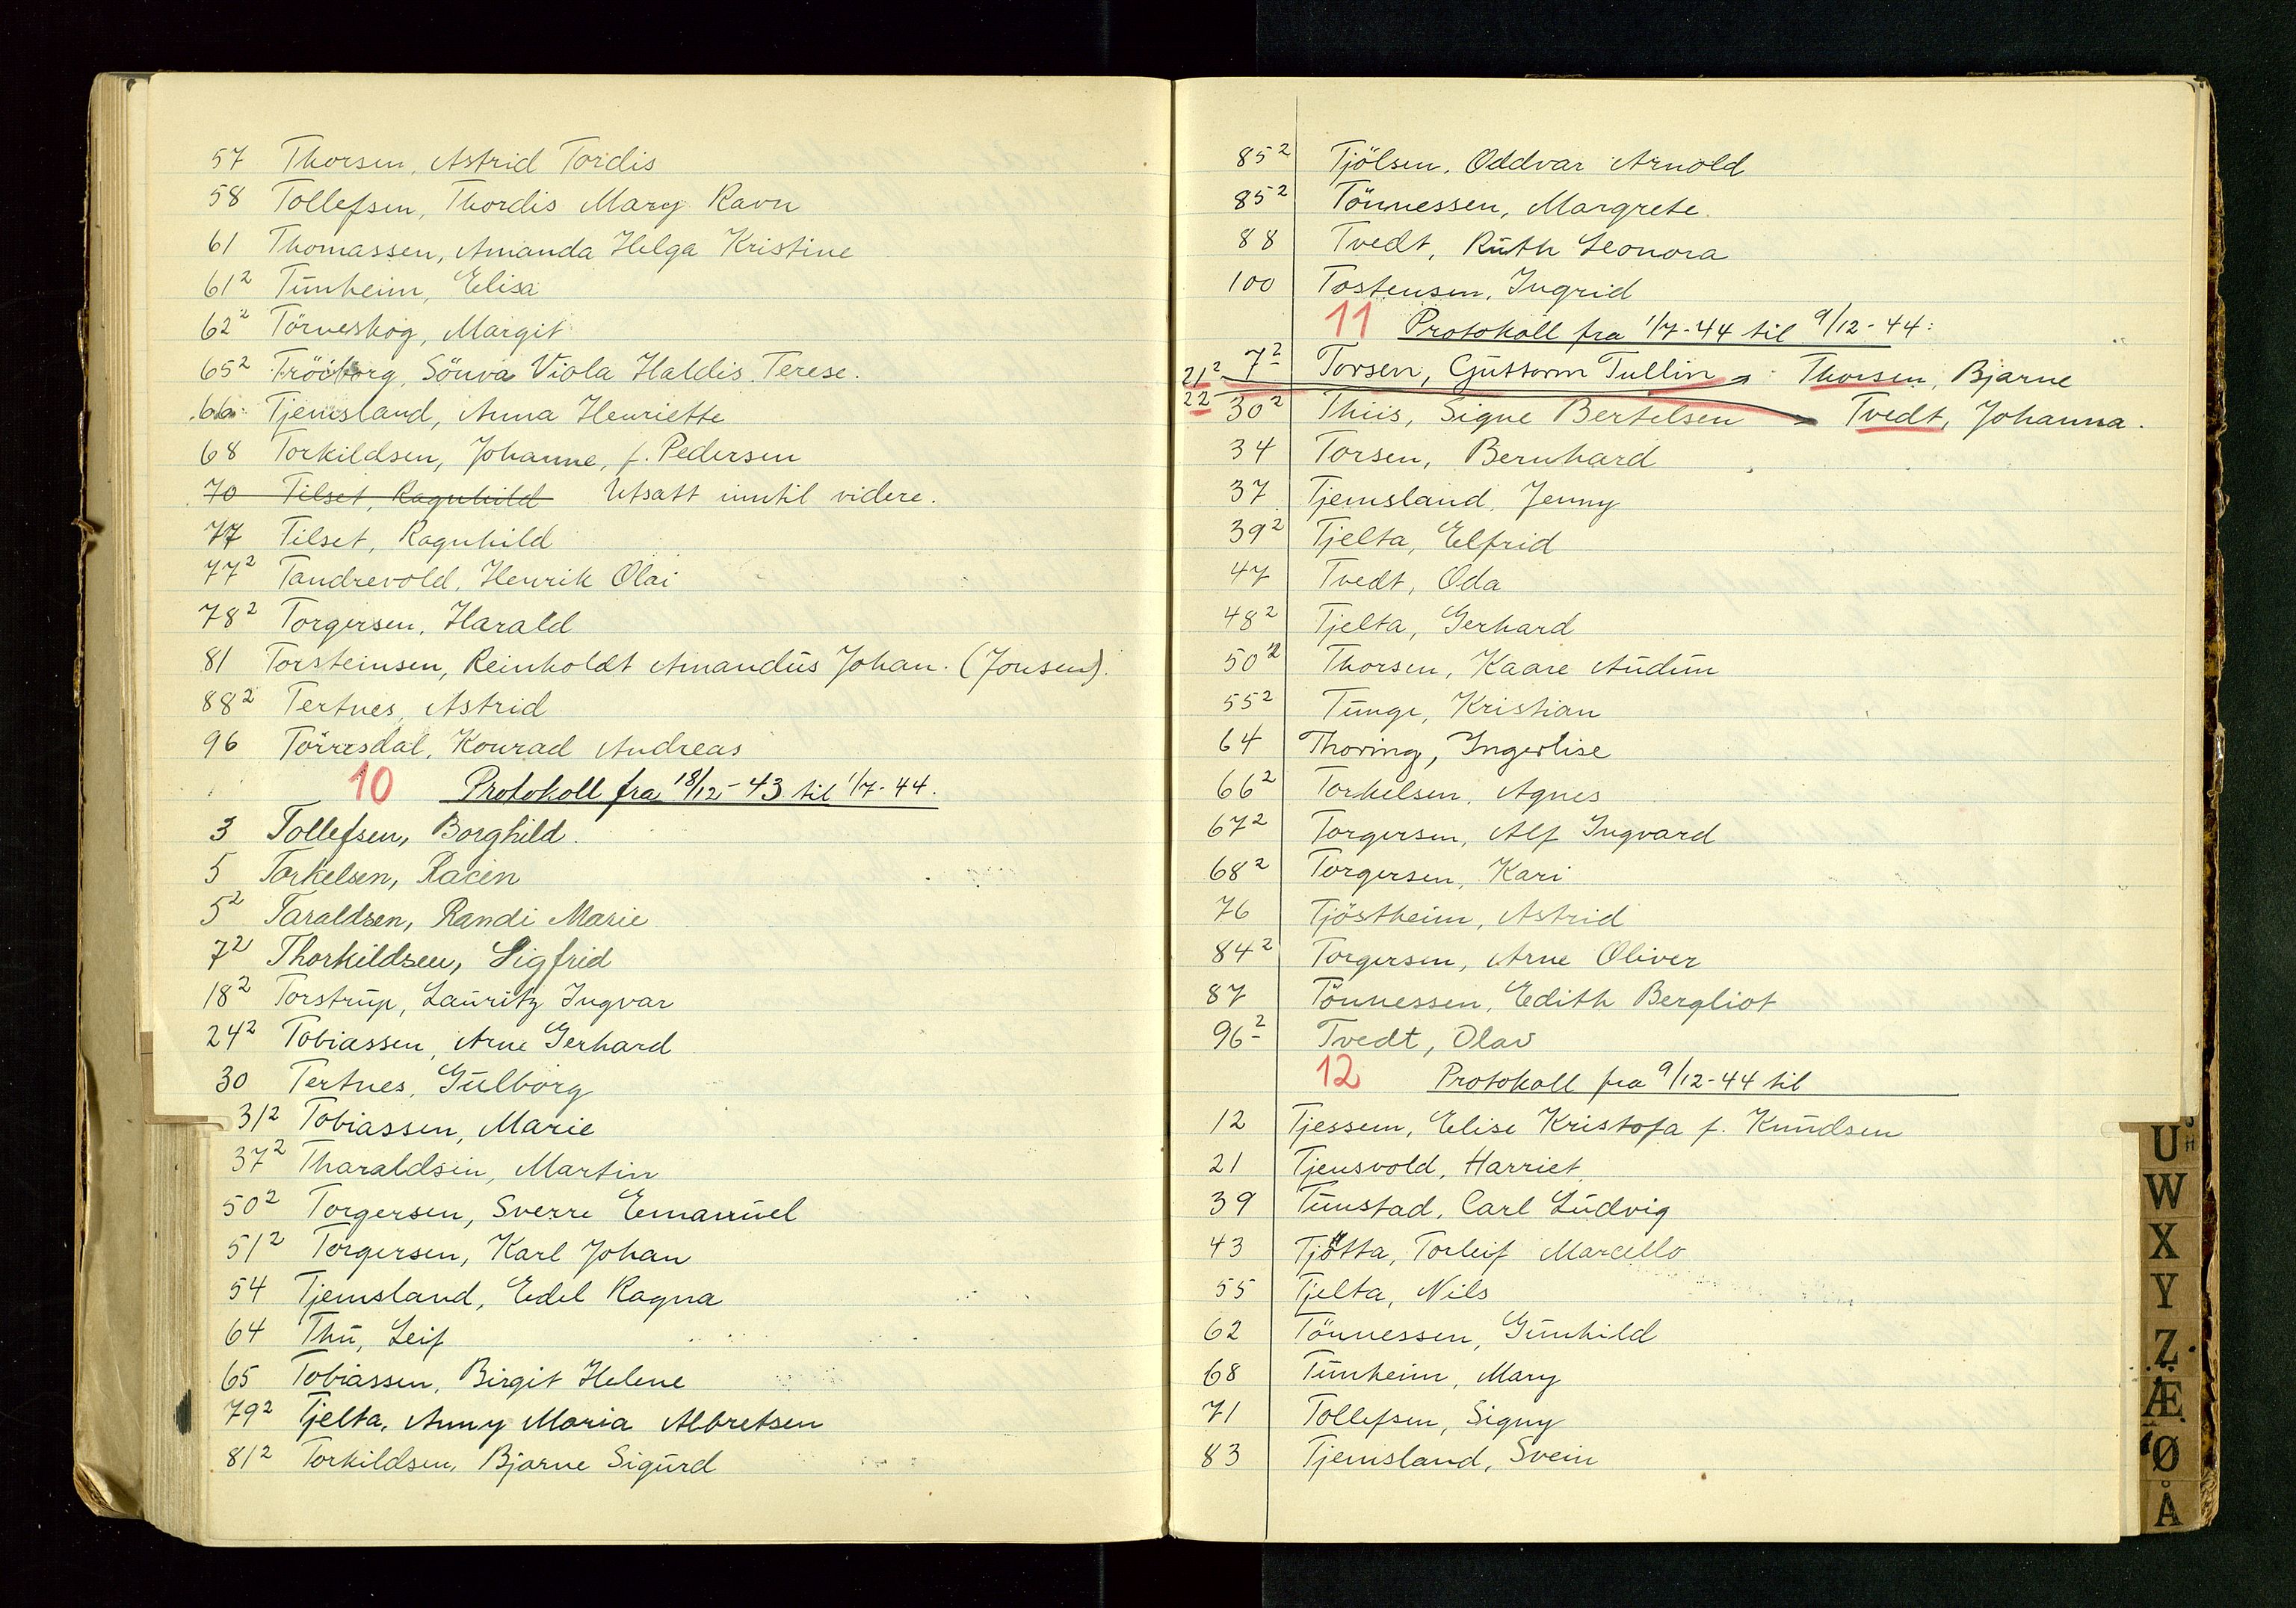 57 Thorsen, Astrid Tordis
58 Tollefsen, Thordis Mary Ravn
61 Thomassen, Amanda Helga Kristine
61² Tunheim, Elisa
62² Törneskog, Margit
65² Tröiborg, Sönva Viola Haldis Terese.
66 Tjemsland, Anna Henriette
68 Torkildsen, Johanne, f. Pedersen
70 Tilset, Ragnhild Utsatt inntil videre.
77 Tilset, Ragnhild
77² Tandrevold, Henrik Olai
78² Torgersen, Harald
81 Torsteinsen, Reinholdt Amandus Johan. (Jonsen).
88² Tertnes, Astrid
96 Törresdal, Konrad Andreas
10 Protokoll fra 18/12-43 til 1/7-44.
3 Tollefsen, Borghild.
5 Torkelsen, Racin
5² Taraldsen, Randi Marie
7² Thorkildsen, Sigfrid
18² Torstrup, Lauritz Ingvar
24² Tobiassen, Arne Gerhard
30 Tertnes, Gulborg
31² Tobiassen, Marie
37² Tharaldsin, Martin
50² Torgersen, Sverre Emanuel
51² Torgersen, Karl Johan
54 Tjemsland, Edel Ragna
64 Thu, Leif
65 Tobiassen, Birgit Helene
79² Tjelta, Anny Maria Albretsen
81² Torkildsen, Bjarne Sigurd
85² Tjölsen, Oddvar Arnold
85² Tönnessen, Margrete.
88 Tvedt, Ruth Leonora
100 Tostensen, Ingrid
11 Protokoll fra 1/7-44 til 9/12-44:
21² 7² Torsen, Guttorm Tullin Thorsen, Bjarne
22 30² Thiis, Signe Bertelsen Tvedt, Johanna.
34 Torsen, Bernhard
37 Tjemsland, Jenny
39² Tjelta, Elfrid
47 Tvedt, Oda
48² Tjelta, Gerhard
50² Thorsen, Kaare Audun
55² Tunge, Kristian
64 Thoring, Ingerlise
66² Torkelsen, Agnes
67² Torgersen, Alf Ingvard
68² Torgersen, Kari
76 Tjöstheim, Astrid
84² Torgersen, Arne Oliver
87 Tönnessen, Edith Bergliot
96² Tvedt, Olav
12 Protokoll fra 9/12-44 til
12 Tjessem, Elise Kristofa f. Knudsen
21 Tjensvold, Harriet
39 Tunstad, Carl Ludvig
43 Tjötta, Torleif Marcello
55 Tjelta, Nils
62 Tönnessen, Gunhild
68 Tunheim, Mary
71 Tollefsen, Signy
83 Tjemsland, Svein
U
W
X
Y
Z
Æ
Ø
Å